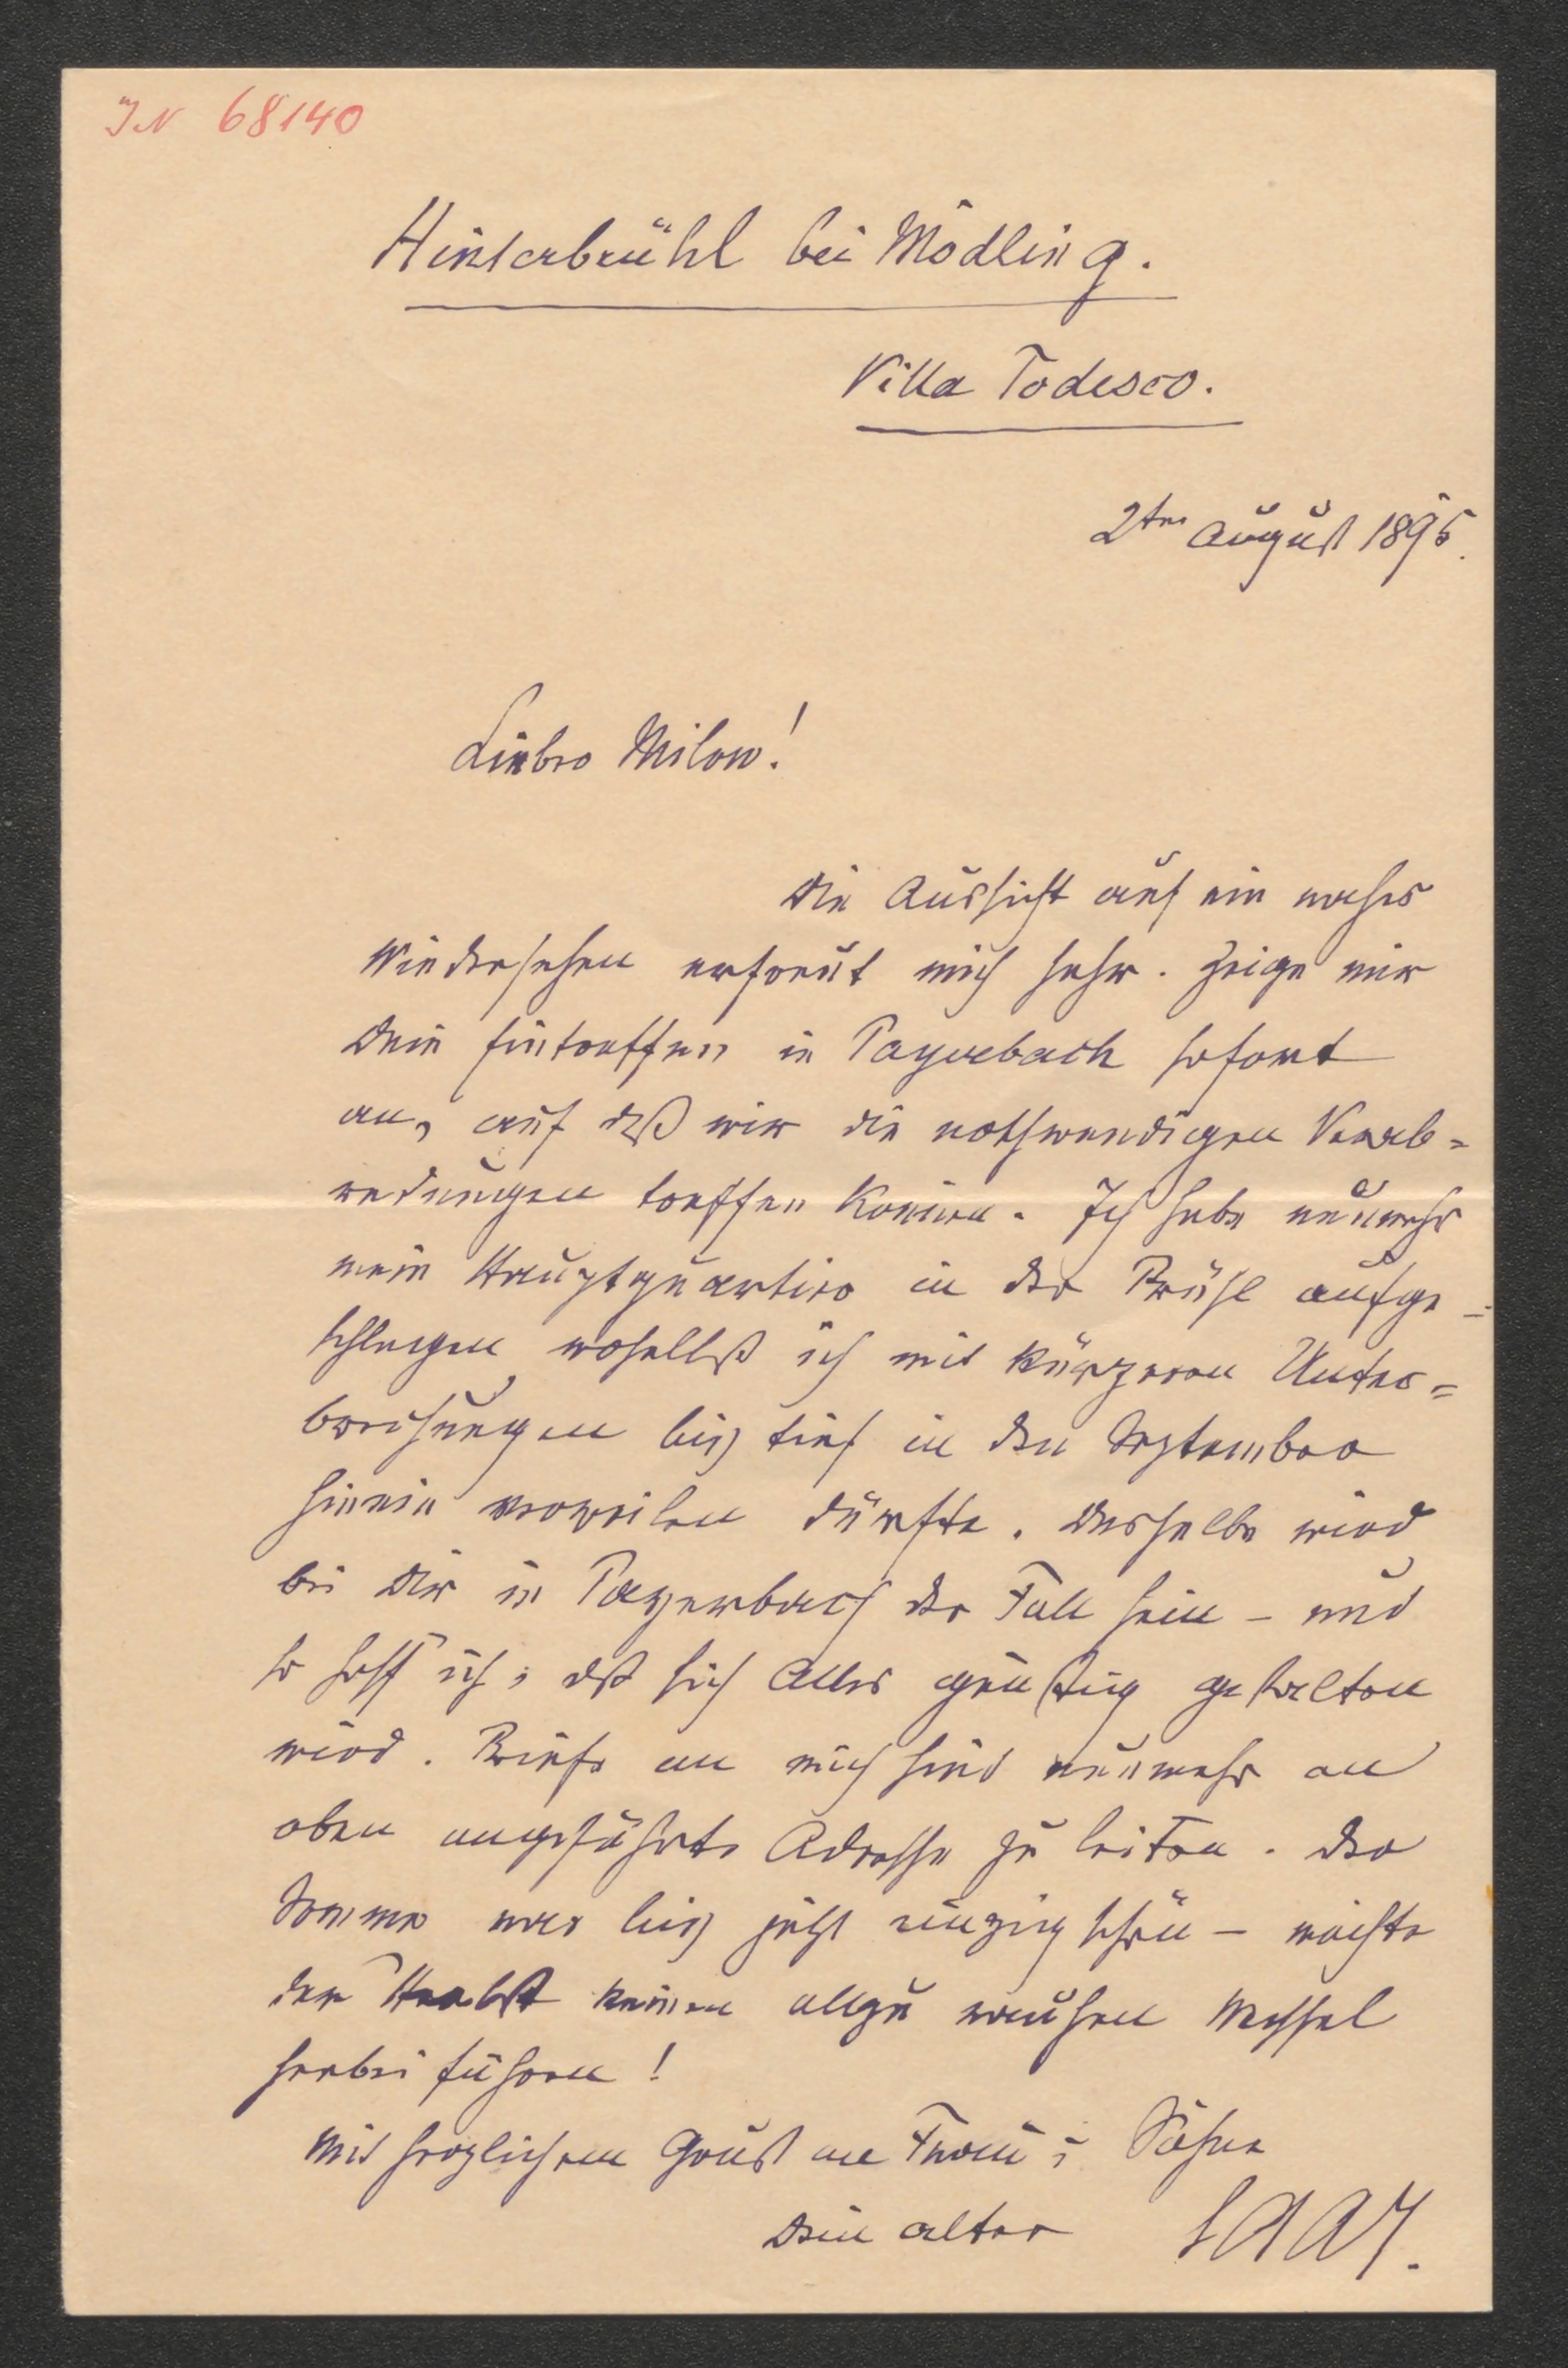 IN 68140
Hinterbrühl bei Mödling.
Villa Todesco.
2ten August 1895.
Lieber Milow!
Die Aussicht auf ein nahes
Wiedersehen erfreut mich sehr. Zeige mir
Dein Eintreffen in Payerbach sofort
an, auf daß wir die nothwendigen Verab=
redungen treffen können. Ich habe nunmehr
mein Hauptquartier in der Brühl aufge-
schlagen, woselbst ich mit kürzeren Unter=
brechungen bis tief in den September
hinein verweilen dürfte. Dasselbe wird
bei Dir in Payerbach der Fall sein – und
so hoff' ich, daß sich Alles günstig gestalten
wird. Briefe an mich sind nunmehr an
oben angeführte Adresse zu leiten. Der
Sommer war bis jetzt einzig schön – möchte
der Herbst keinen allzu rauhen Wechsel
herbei führen!
Mit herzlichem Gruß an Frau u Söhne
Dein alter SAAR.